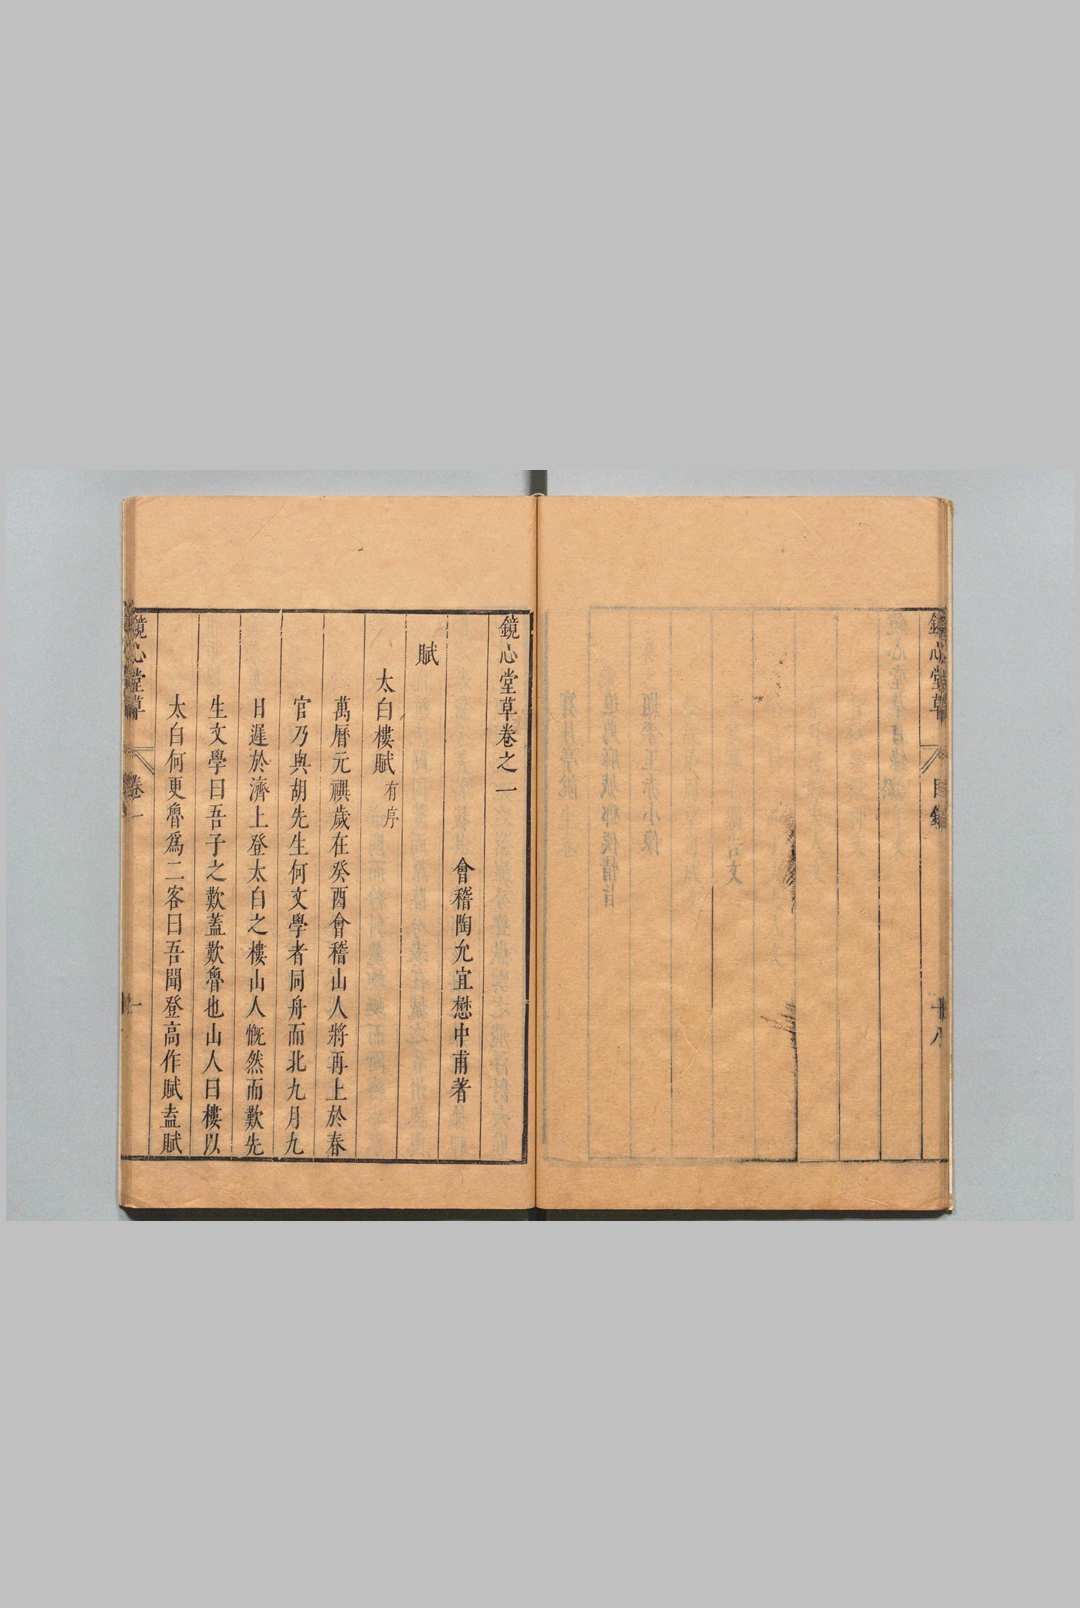 鏡心堂草
目錄
鏡心堂草卷之一
會稽陶允宜懋中甫著
賦
太白樓賦有序
萬曆元禩歲在癸酉會稽山人將再上於春
官乃與胡先生何文學者同舟而北九月九
日遲於濟上登太白之樓山人慨然而歎先
生文學曰吾子之歎蓋歎魯也山人曰樓以
太白何更魯爲二客曰吾聞登高作賦盍賦
鏡心堂草
卷一
一